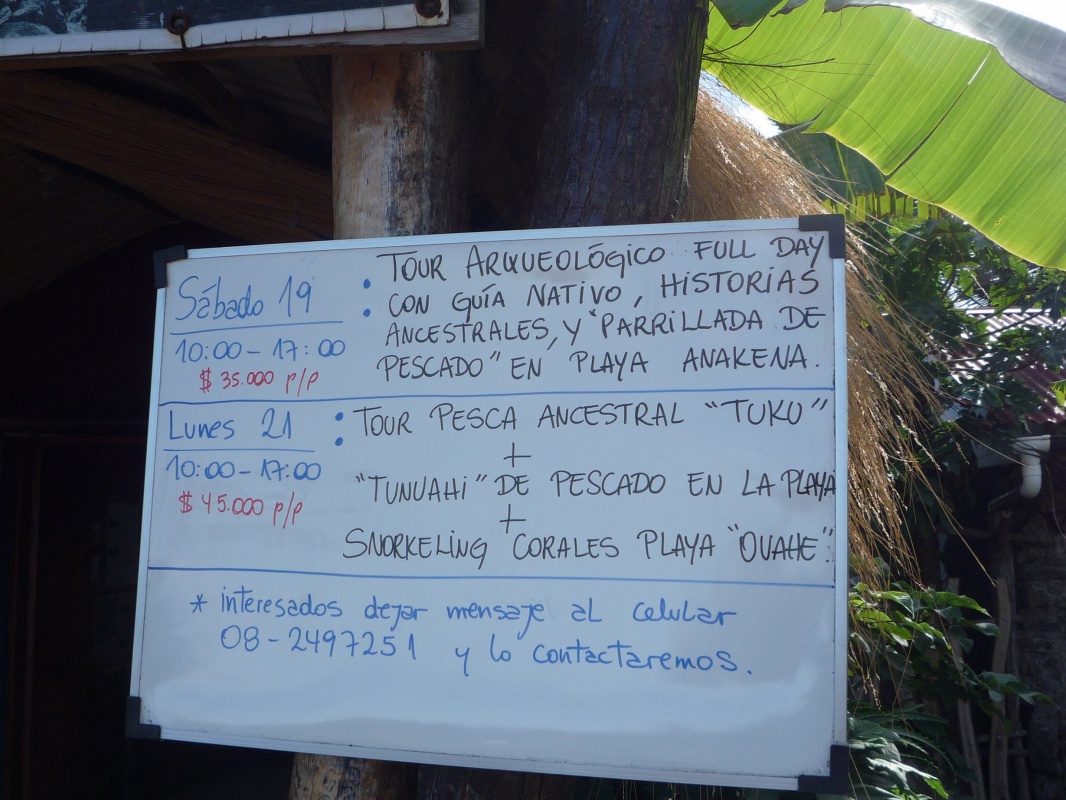 Sábado 19 :
10:00 - 17:00
$ 35.000 p/p
TOUR ARQUEOLÓGICO FULL DAY
CON GUÍA NATIVO, HISTORIAS
ANCESTRALES, Y "PARRILLADA DE
PESCADO" EN PLAYA ANAKENA.
Lunes 21 :
10:00 - 17:00
$ 45.000 p/p
TOUR PESCA ANCESTRAL "TUKU"
+
"TUNUAHI" DE PESCADO EN LA PLAYA
+
SNORKELING CORALES PLAYA "OVAHE".
* interesados dejar mensaje al celular
08-2497251 y lo contactaremos.